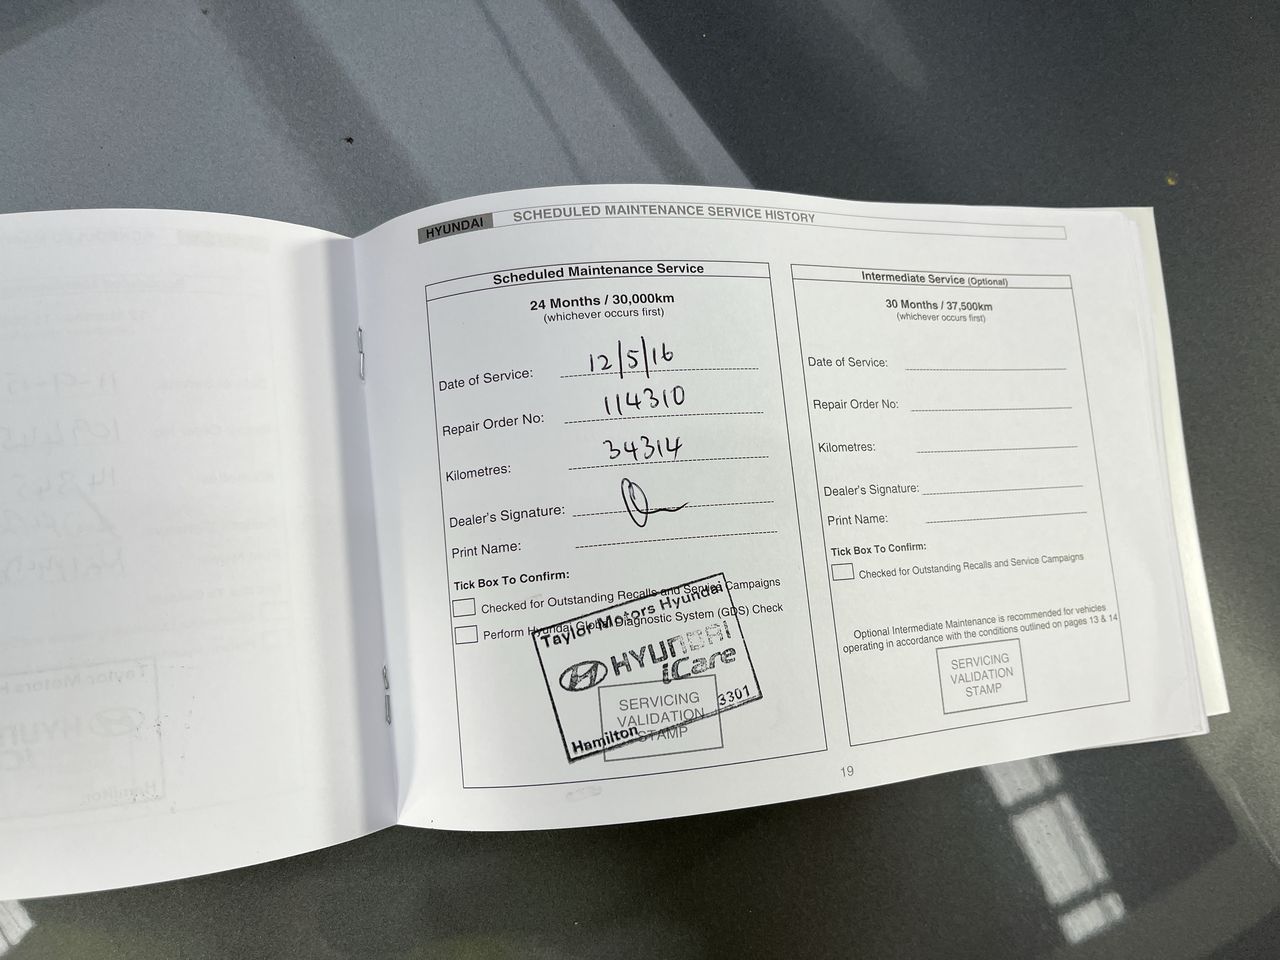 HYUNDAI
SCHEDULED MAINTENANCE SERVICE HISTORY
Scheduled Maintenance Service
24 Months / 30,000km
(whichever occurs first)
Date of Service: 12/5/16
Repair Order No: 114310
Kilometres: 34314
Dealer's Signature:
Print Name:
Tick Box To Confirm:
Checked for Outstanding Recalls and Service Campaigns
Perform Hyundai Global Diagnostic System (GDS) Check
Taylor Motors Hyundai
HYUNDAI
iCare
3301
Hamilton
SERVICING
VALIDATION
STAMP
Intermediate Service (Optional)
30 Months / 37,500km
(whichever occurs first)
Date of Service:
Repair Order No:
Kilometres:
Dealer's Signature:
Print Name:
Tick Box To Confirm:
Checked for Outstanding Recalls and Service Campaigns
Optional Intermediate Maintenance is recommended for vehicles
operating in accordance with the conditions outlined on pages 13 & 14
SERVICING
VALIDATION
STAMP
19